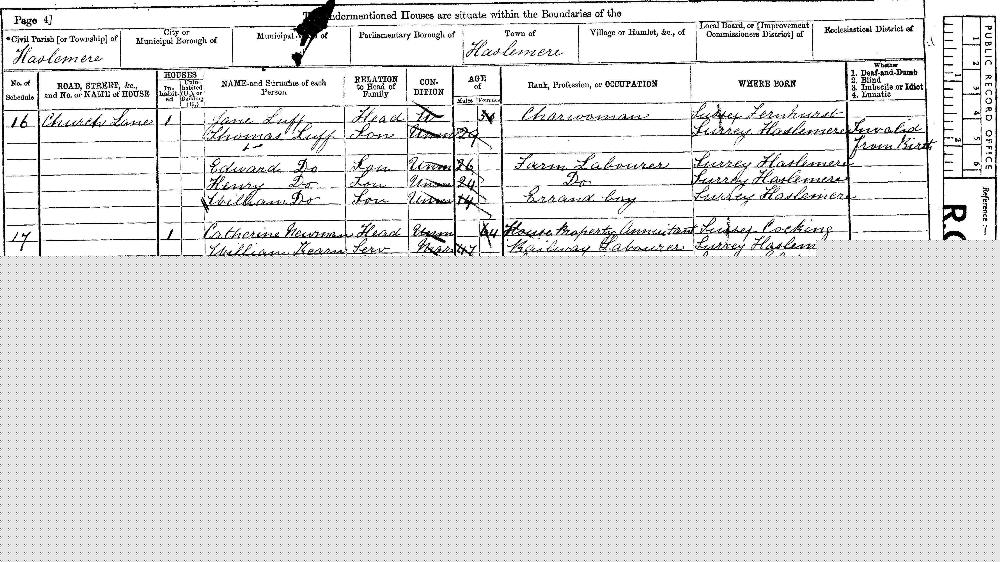 Page 4] The undermentioned Houses are situate within the Boundaries of the
*Civil Parish [or Township] of City or Municipal Borough of Municipal Parliamentary Borough of Town of Village or Hamlet, &c., of Local Board, or [Improvement Commissioners District] of Ecclesiastical District of
Haslemere Haslemere
No. of Schedule ROAD, STREET, &c., and No. or NAME of HOUSE HOUSES Inhabited Uninhabited (U.), or Building (B.) NAME and Surname of each Person RELATION to Head of Family CONDITION AGE of Males Females Rank, Profession, or OCCUPATION WHERE BORN Whether 1. Deaf-and-Dumb 2. Blind 3. Imbecile or Idiot 4. Lunatic
16 Church Lane 1 Jane Luff Head W Charwoman Sussex Fernhurst
Thomas Luff Son Unm 29 Surrey Haslemere Invalid from Birth
Edward Do Son Unm 26 Farm Labourer Surrey Haslemere
Henry Do Son Unm 24 Do Surrey Haslemere
William Do Son Unm 14 Errand boy Surrey Haslemere
17 1 Catherine Newman Head Unm 64 House Property Annuitant Sussex Cocking
William Hearn Serv Marr 47 Railway Labourer Surrey Haslem
PUBLIC RECORD OFFICE
1 2 3 4 5 6
1 2
Reference :-